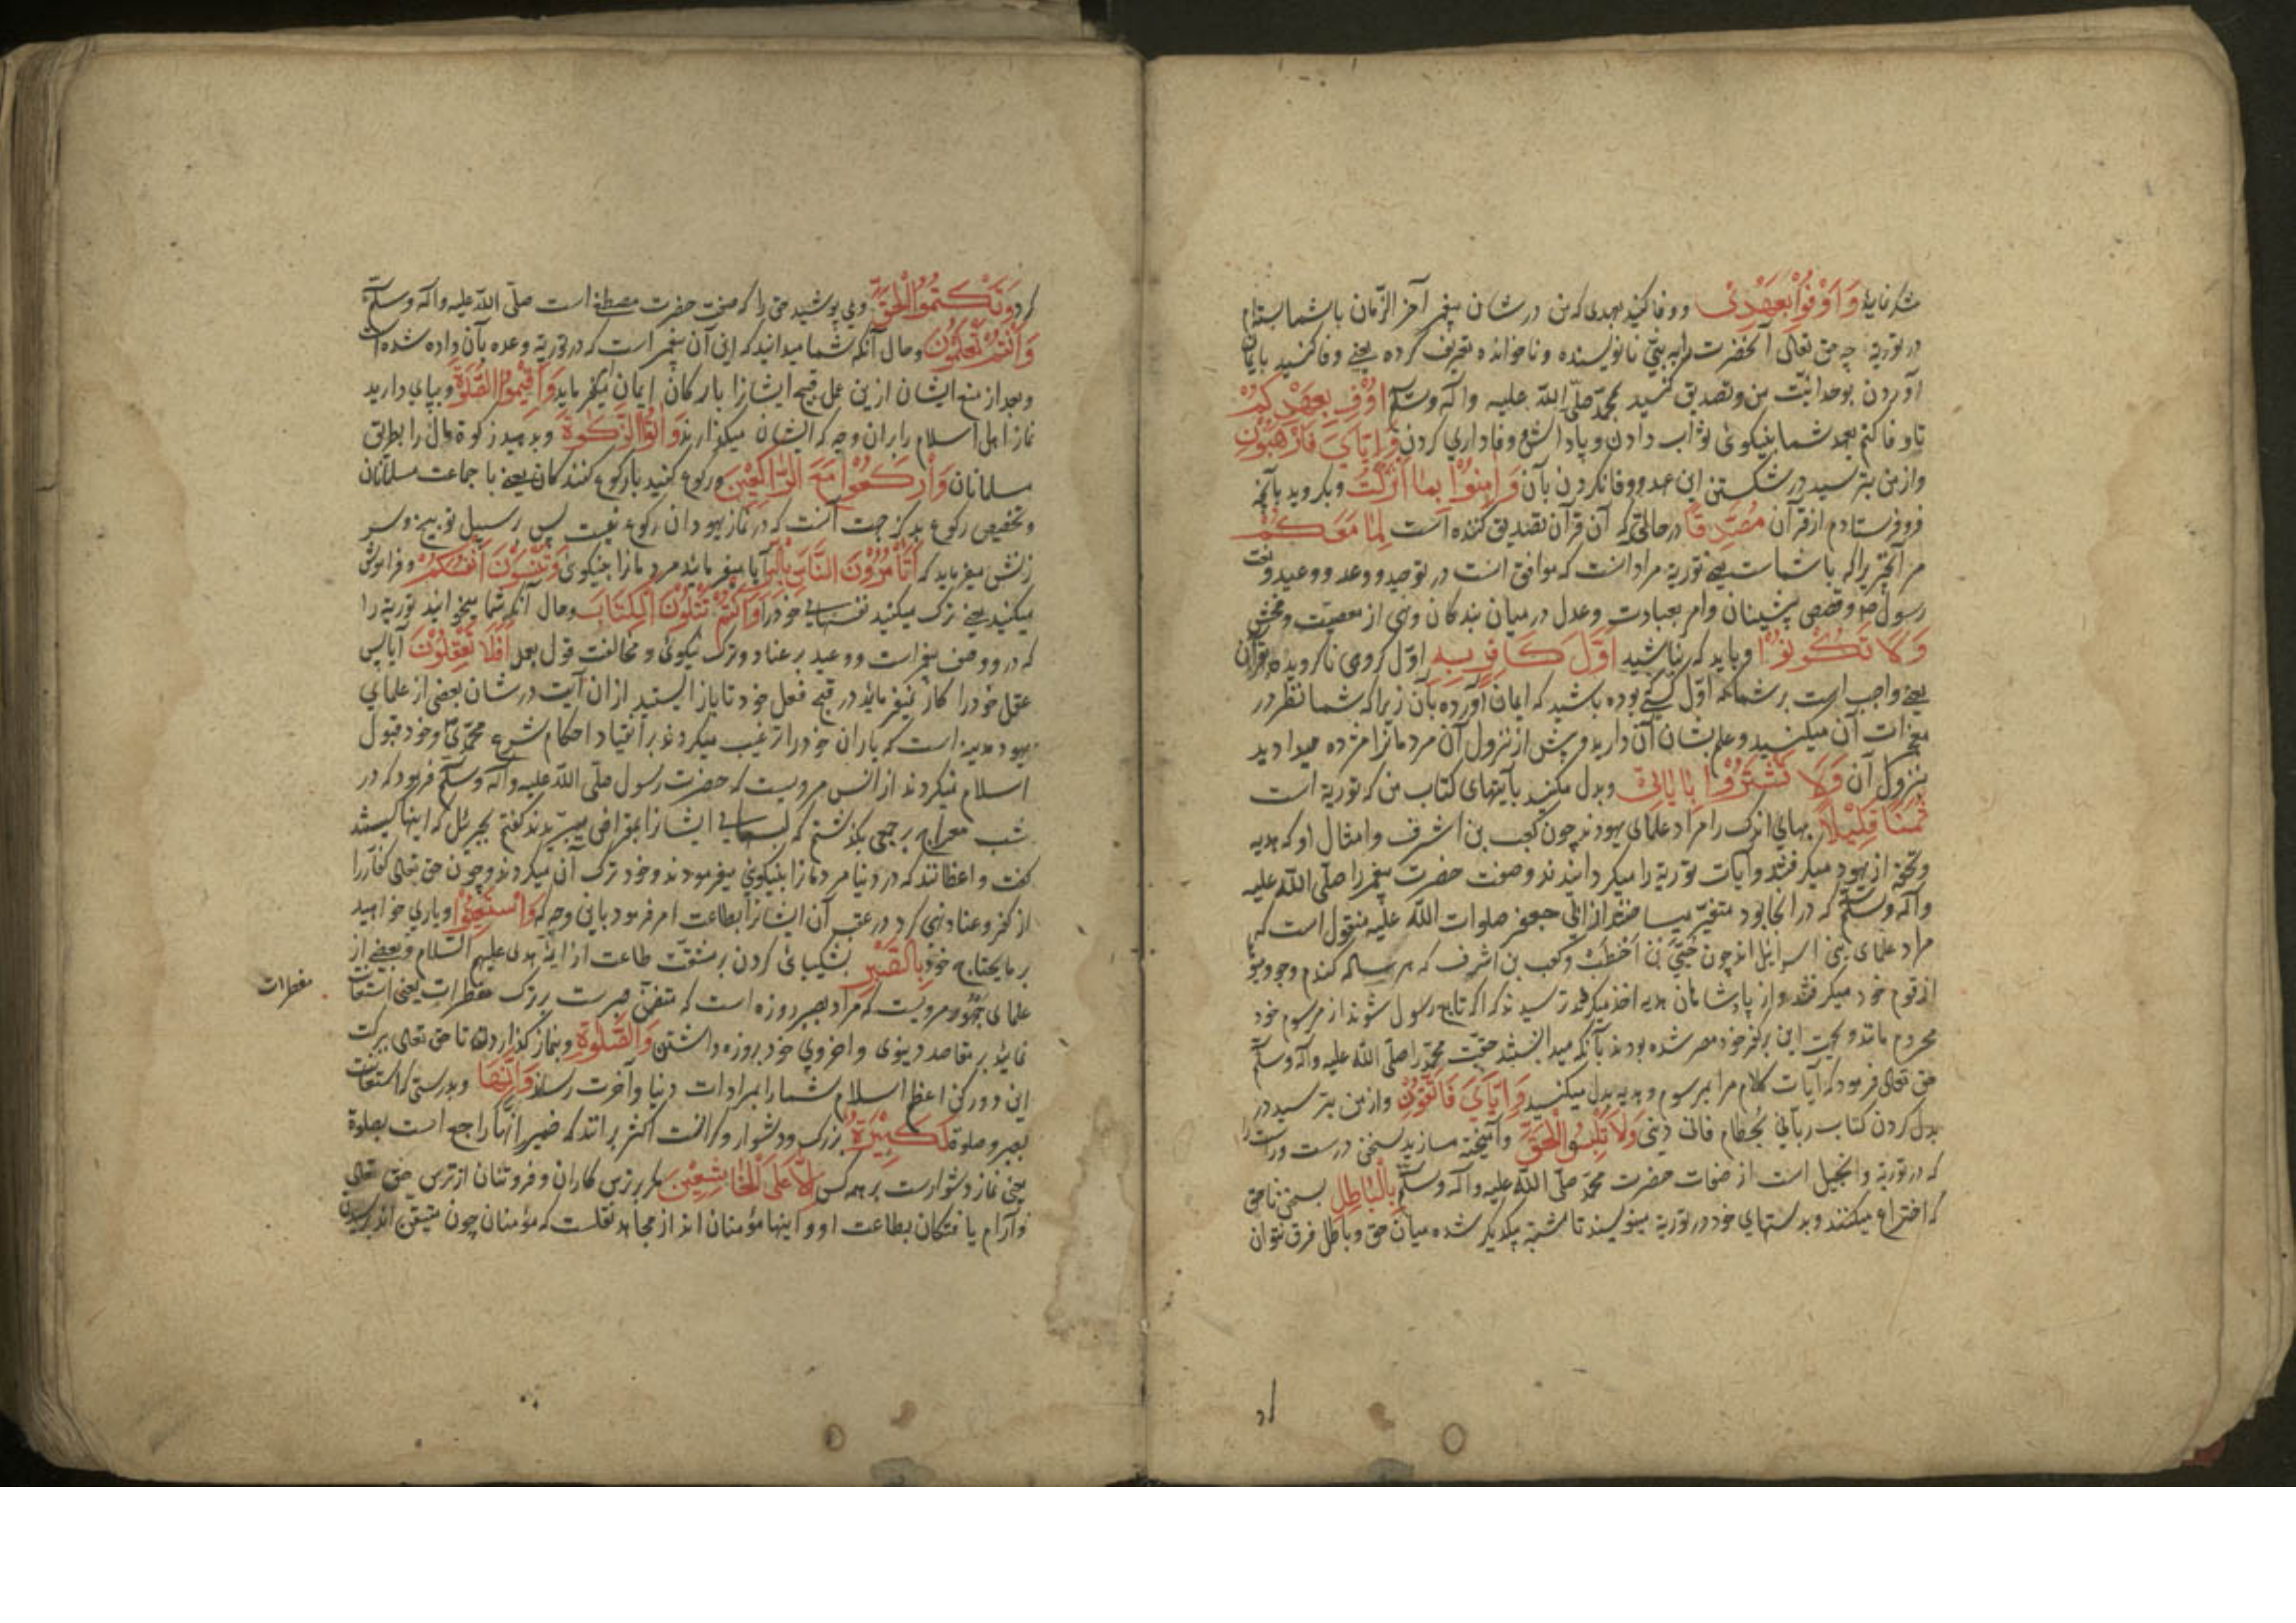 شکر نمایید وَاَوْفُوا بِعَهْدِی ووفا کنید بعهدی که من در شان پیغمبر آخر الزمان با شما بسته‌ام
در توریة چه حق تعالی آنحضرت را به نبی نانویسنده و ناخوانده تعریف کرده یعنی وفا کنید بایمان
آوردن بوحدانیّت من وتصدیق کنید محمّد صلّی اللّه علیه وآله وسلّم اُوْفِ بِعَهْدِکُمْ
تا وفا کنم بعهد شما بنیکوئی ثواب دادن و پاداش وفاداری کردن وَاِیَّایَ فَارْهَبُونِ
واز من بترسید در شکستن این عهد ووفا نکردن بآن وَاٰمِنُوْا بِمَا اَنْزَلْتُ وبگروید بآنچه
فرو فرستادم از قرآن مُصَدِّقًا در حالتی که آن قرآن تصدیق کننده است لِمَا مَعَکُمْ
مر آنچیزیرا که با شماست یعنی توریة مراد آنست که موافق است در توحید ووعد ووعید ونعت
رسول ص وقصص پیشینان وامر بعبادت وعدل در میان بندکان ونهی از معصیت وفحش
وَلَا تَکُوْنُوْا وباید که نباشید اَوَّلَ کَافِرٍ بِهِ اوّل کروهی ناکرویده بقرآن
یعنی واجب است بر شما که اول کسی بوده باشید که ایمان آورده بآن زیرا که شما نظر در
معجزات آن میکنید وعلم بشان آن دارید وپیش از نزول آن مردمانرا مژده میدادید
بنزول آن وَلَا تَشْتَرُوْا بِاٰیَاتِیْ وبدل مکنید بآیتهای کتاب من که توریة است
ثَمَنًا قَلِیْلًا بهای اندک را مراد علمای یهودند چون کعب بن اشرف وامثال او که هدیه
وتحفه از یهود میکرفتند وآیات توریة را میکردانیدند وصفت حضرت پیغمبر را صلّی اللّه علیه
وآله وسلّم که در آنجا بود متغیّر میساختند از ابی جعفر صلوات اللّه علیه منقول است که
مراد علمای بنی اسرائیل اند چون حُیَیّ بْنِ اَخْطَبْ وکعب بن اشرف که هر ساله کندم وجو ومیوه
از قوم خود میکرفتند واز پادشاهان هدیه اخذ میکردند ترسیدند که اکر تابع رسول شوند از مرسوم خود
محروم مانند وبجهت این بر کفر خود مصر شده بودند بآنکه میدانستند حقیّت محمّد را صلّی اللّه علیه وآله وسلّم
حق تعالی فرمود که آیات کلام مرا بمرسوم وهدیه بدل میکنید وَاِیَّایَ فَاتَّقُوْنِ واز من بترسید در
بدل کردن کتاب ربّانی بحطام فانی دنیی وَلَا تَلْبِسُوا الْحَقَّ وآمیخته مسازید سخن درست وراست را
که در توریة وانجیل است از صفات حضرت محمّد صلّی اللّه علیه وآله وسلّم بِالْبَاطِلِ بسخن ناحق
که اختراع میکنند وبدستهای خود در توریة مینویسند تا مشتبه بیکدیکر شده میان حق وباطل فرق نتوان
کرد وَتَکْتُمُوا الْحَقَّ ومی پوشید حق را که صفت حضرت مصطفی است صلّی اللّه علیه وآله وسلّم
وَاَنْتُمْ تَعْلَمُوْنَ وحال آنکه شما میدانید که این آن پیغمبر است که در توریة وعده بآن داده شده است
وبعد از منع ایشان ازین عمل قبیح ایشانرا بارکان ایمان میفرماید وَاَقِیْمُوا الصَّلٰوةَ وبپای دارید
نماز اهل اسلام را بران وجه که ایشان میکذارند وَاٰتُوا الزَّکٰوةَ وبدهید زکوة مال را بطریق
مسلمانان وَارْکَعُوْا مَعَ الرَّاکِعِیْنَ ورکوع کنید با رکوع کنندکان یعنی با جماعت مسلمانان
وتخصیص رکوع بذکر جهت آنست که در نماز یهودان رکوع نیست پس بر سبیل توبیخ وسر
زنش میفرماید که اَتَأْمُرُوْنَ النَّاسَ بِالْبِرِّ آیا میفرمائید مردمانرا بنیکوی وَتَنْسَوْنَ اَنْفُسَکُمْ وفراموش
میکنید یعنی ترک میکنید نفسهای خود را وَاَنْتُمْ تَتْلُوْنَ الْکِتَابَ وحال آنکه شما میخوانید توریة را
که درو وصف پیغمبر است ووعید بر عناد وترک نیکوئی ومخالفت قول بعمل اَفَلَا تَعْقِلُوْنَ آیا پس
عقل خود را کار نمیفرمائید در قبح فعل خود تا باز ایستید از ان آیت در شان بعضی از علمای
یهود مدینه است که یاران خود را ترغیب میکردند بر انقیاد احکام شرع محمّدی ص وخود قبول
اسلام نمیکردند از انس مرویست که حضرت رسول صلّی اللّه علیه وآله وسلّم فرمود که در
شب معراج بر جمعی بکذشتم که لبهای ایشانرا بمقراض میبریدند کفتم بجبرئیل که اینها کیستند
کفت واعظانند که در دنیا مردمانرا بنیکوئی میفرمودند وخود ترک آن میکردند وچون حق تعالی کفّار را
از کفر وعناد نهی کرد در عقب آن ایشانرا بطاعت امر فرمود باین وجه که وَاسْتَعِیْنُوْا ویاری خواهید
بر مایحتاج خود بِالصَّبْرِ بشکیبائی کردن بر مشقّت طاعت از ایمّه هدی علیهم السلام وبعضی از
علمای جمهور مرویست که مراد بصبر روزه است که متضمّن صبرست بر ترک مفطرات یعنی استعانت
مفطرات
نمائید بر مقاصد دنیوی واخروی خود بروزه داشتن وَالصَّلٰوةِ وبنماز کذاردن تا حق تعالی ببرکت
این دو رکن اعظم اسلام شما را بمرادات دنیا وآخرت رساند وَاِنَّهَا وبدرستی که استعانت
بصبر وصلوة لَکَبِیْرَةٌ بزرک ودشوار وکرانست اکثر برانند که ضمیر انّها راجع است بصلوة
یعنی نماز دشوارست بر همه کس اِلَّا عَلَی الْخَاشِعِیْنَ مکر بر ترس کاران وفروتنان از ترس حق تعالی
وآرام یافتکان بطاعت او واینها مؤمنان اند از مجاهد نقلست که مؤمنان چون متیقّن اند برسیدن